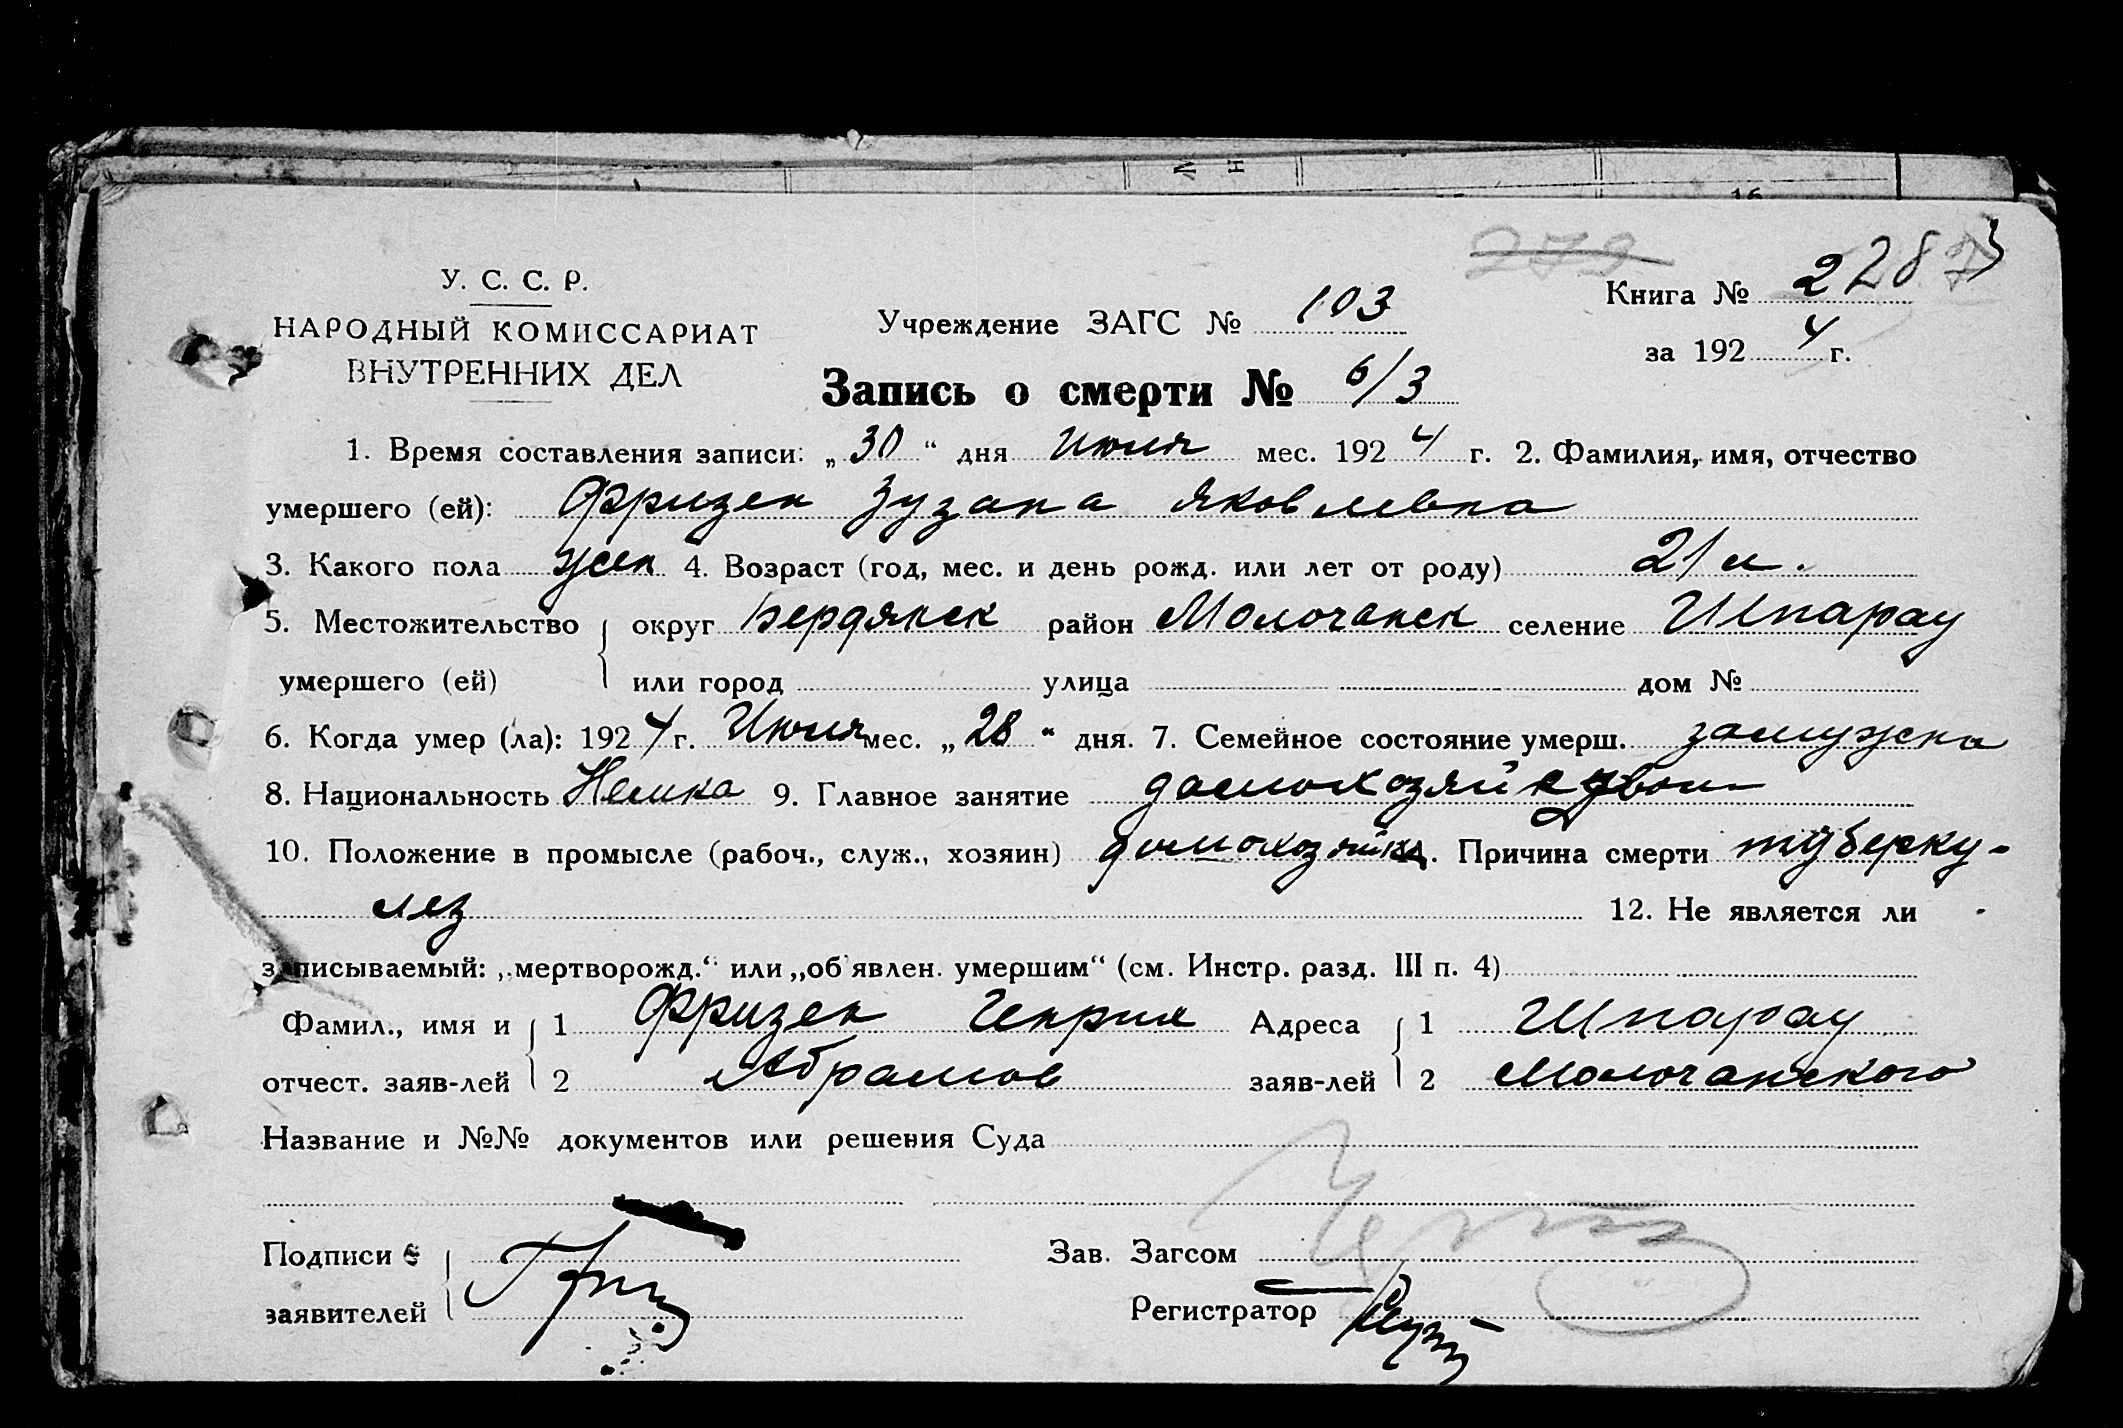 279
У. С. С. Р.
НАРОДНЫЙ КОМИССАРИАТ
ВНУТРЕННИХ ДЕЛ
Учреждение ЗАГС № 103
Книга № 2 283
за 1924 г.
Запись о смерти № 6/3
1. Время составления записи: „30“ дня Июля мес. 1924 г. 2. Фамилия, имя, отчество
умершего (ей): Фризен Зузана Яковлевна
3. Какого пола жен 4. Возраст (год, мес. и день рожд. или лет от роду) 21 л.
5. Местожительство округ Бердянск район Молочанск селение Шпарау
умершего (ей) или город улица дом №
6. Когда умер (ла): 1924 г. Июля мес. „28“ дня. 7. Семейное состояние умерш. замужна
8. Национальность Немка 9. Главное занятие домохозяйством
10. Положение в промысле (рабоч., служ., хозяин) домохозяйка. Причина смерти туберку-
лез 12. Не является ли
записываемый: „мертворожд.“ или „об'явлен. умершим“ (см. Инстр. разд. III п. 4)
Фамил., имя и 1 Фризен Генрих Адреса 1 Шпарау
отчест. заяв-лей 2 Абрамов заяв-лей 2 Молочанского
Название и №№ документов или решения Суда
Подписи Зав. Загсом
заявителей Регистратор